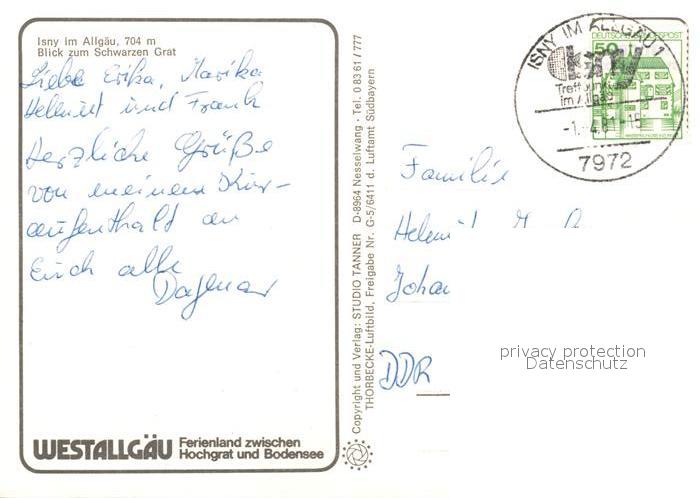 Isny im Allgäu, 704 m
Blick zum Schwarzen Grat
Liebe Erika, Marika
Helmut und Frank
Herzliche Grüße
von meinem Kur-
aufenthalt an
Euch alle
Dagmar
WESTALLGÄU Ferienland zwischen
Hochgrat und Bodensee
Copyright und Verlag: STUDIO TANNER D-8964 Nesselwang · Tel. 0 83 61 / 777
THORBECKE-Luftbild, Freigabe Nr. G-5/6411 d. Luftamt Südbayern
ISNY IM ALLGÄU 1
Treffpunkt
im Allgäu
-1.-4.81-15
7972
DEUTSCHE BUNDESPOST
50
Familie
Helmut
Johan
DDR
privacy protection
Datenschutz